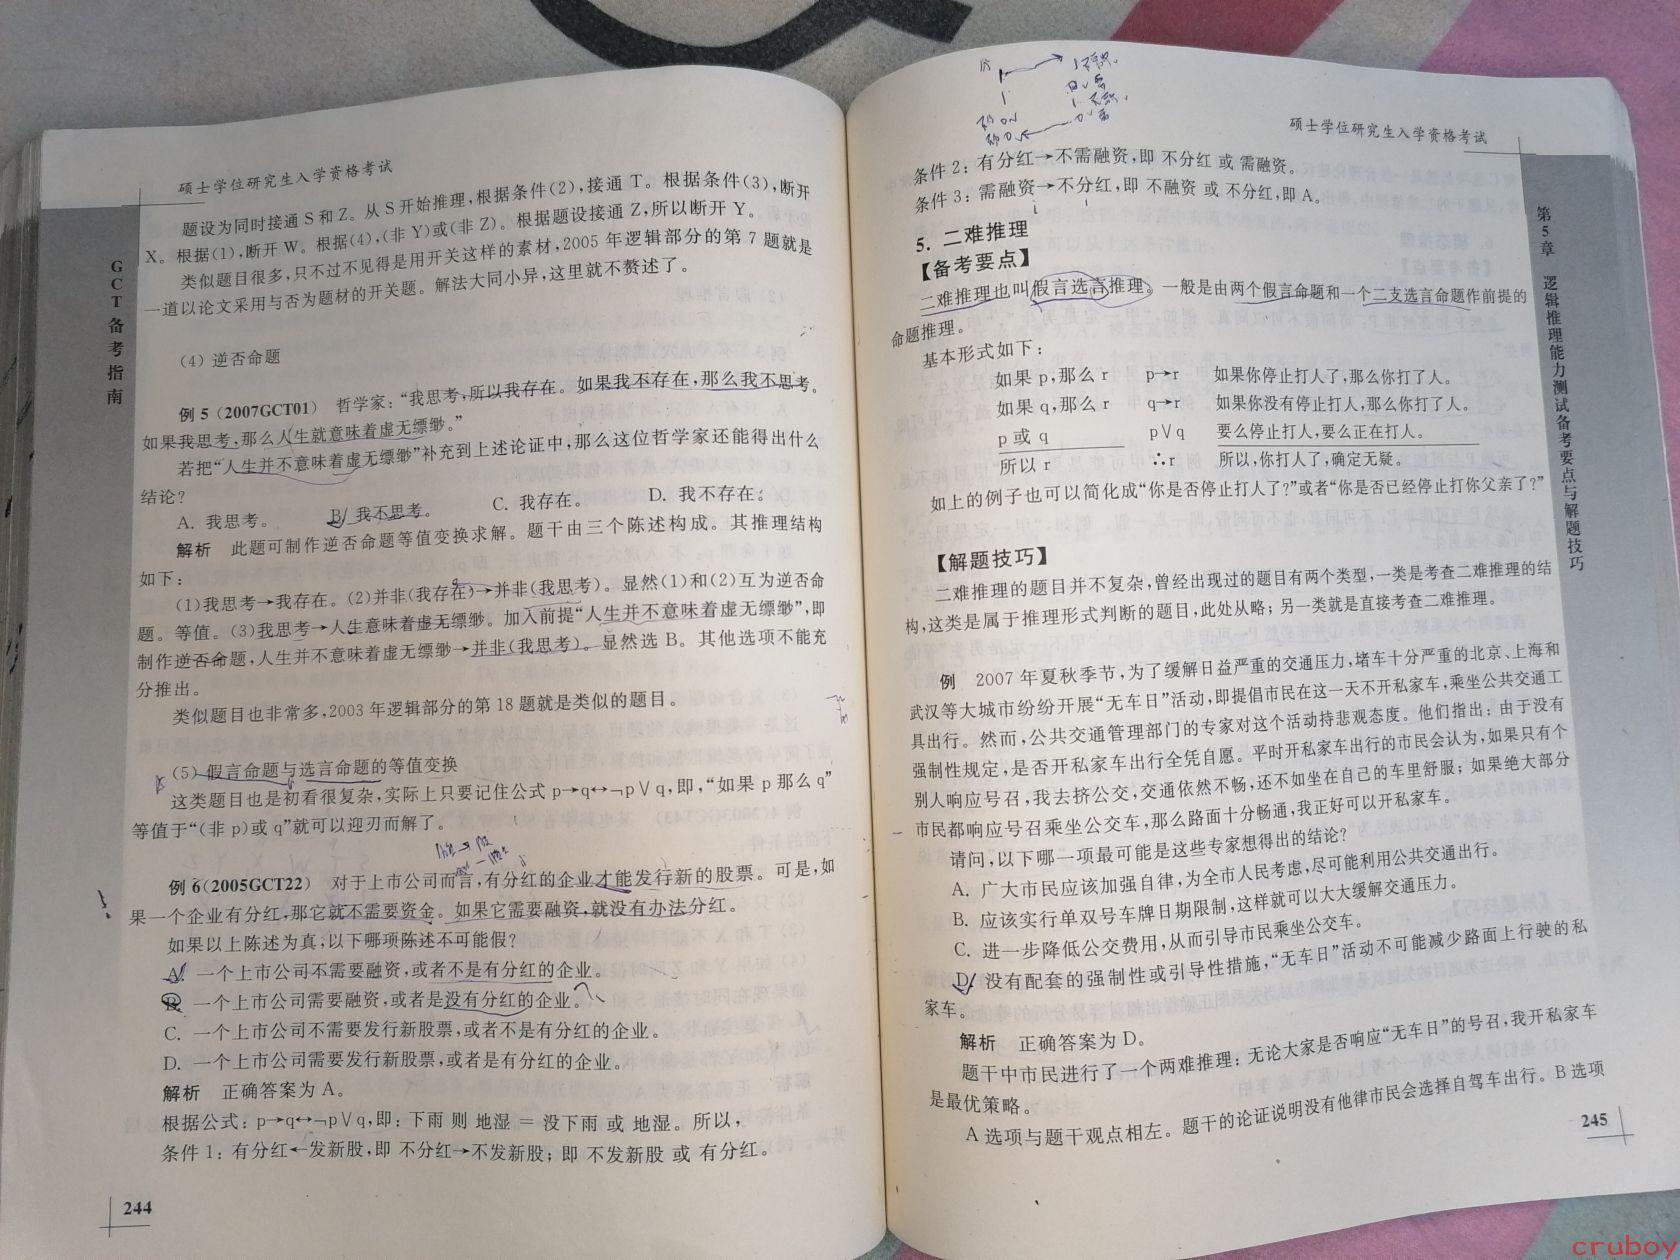 硕士学位研究生入学资格考试
GCT备考指南
题设为同时接通 S 和 Z。从 S 开始推理,根据条件(2),接通 T。根据条件(3),断开
X。根据(1),断开 W。根据(4),(非 Y)或(非 Z)。根据题设接通 Z,所以断开 Y。
类似题目很多,只不过不见得是用开关这样的素材,2005 年逻辑部分的第 7 题就是
一道以论文采用与否为题材的开关题。解法大同小异,这里就不赘述了。
(4) 逆否命题
例 5 (2007GCT01) 哲学家:“我思考,所以我存在。如果我不存在,那么我不思考。
如果我思考,那么人生就意味着虚无缥缈。”
若把“人生并不意味着虚无缥缈”补充到上述论证中,那么这位哲学家还能得出什么
结论?
A. 我思考。 B. 我不思考。 C. 我存在。 D. 我不存在。
解析 此题可制作逆否命题等值变换求解。题干由三个陈述构成。其推理结构
如下:
(1)我思考→我存在。(2)并非(我存在)→并非(我思考)。显然(1)和(2)互为逆否命
题。等值。(3)我思考→人生意味着虚无缥缈。加入前提“人生并不意味着虚无缥缈”,即
制作逆否命题,人生并不意味着虚无缥缈→并非(我思考)。显然选 B。其他选项不能充
分推出。
类似题目也非常多,2003 年逻辑部分的第 18 题就是类似的题目。
(5) 假言命题与选言命题的等值变换
这类题目也是初看很复杂,实际上只要记住公式 p→q↔¬p∨q,即,“如果 p 那么 q”
等值于“(非 p)或 q”就可以迎刃而解了。
例 6(2005GCT22) 对于上市公司而言,有分红的企业才能发行新的股票。可是,如
果一个企业有分红,那它就不需要资金。如果它需要融资,就没有办法分红。
如果以上陈述为真,以下哪项陈述不可能假?
A. 一个上市公司不需要融资,或者不是有分红的企业。
B. 一个上市公司需要融资,或者是没有分红的企业。
C. 一个上市公司不需要发行新股票,或者不是有分红的企业。
D. 一个上市公司需要发行新股票,或者是有分红的企业。
解析 正确答案为 A。
根据公式: p→q↔¬p∨q,即:下雨 则 地湿 = 没下雨 或 地湿。所以,
条件 1: 有分红←发新股,即 不分红→不发新股; 即 不发新股 或 有分红。
244
硕士学位研究生入学资格考试
第5章 逻辑推理能力测试备考要点与解题技巧
条件 2: 有分红→不需融资,即 不分红 或 需融资。
条件 3: 需融资→不分红,即 不融资 或 不分红,即 A。
5. 二难推理
【备考要点】
二难推理也叫假言选言推理。一般是由两个假言命题和一个二支选言命题作前提的
命题推理。
基本形式如下:
如果 p,那么 r p→r 如果你停止打人了,那么你打了人。
如果 q,那么 r q→r 如果你没有停止打人,那么你打了人。
p 或 q p∨q 要么停止打人,要么正在打人。
所以 r ∴r 所以,你打人了,确定无疑。
如上的例子也可以简化成“你是否停止打人了?”或者“你是否已经停止打你父亲了?”
【解题技巧】
二难推理的题目并不复杂,曾经出现过的题目有两个类型,一类是考查二难推理的结
构,这类是属于推理形式判断的题目,此处从略; 另一类就是直接考查二难推理。
例 2007 年夏秋季节,为了缓解日益严重的交通压力,堵车十分严重的北京、上海和
武汉等大城市纷纷开展“无车日”活动,即提倡市民在这一天不开私家车,乘坐公共交通工
具出行。然而,公共交通管理部门的专家对这个活动持悲观态度。他们指出: 由于没有
强制性规定,是否开私家车出行全凭自愿。平时开私家车出行的市民会认为,如果只有个
别人响应号召,我去挤公交,交通依然不畅,还不如坐在自己的车里舒服; 如果绝大部分
市民都响应号召乘坐公交车,那么路面十分畅通,我正好可以开私家车。
请问,以下哪一项最可能是这些专家想得出的结论?
A. 广大市民应该加强自律,为全市人民考虑,尽可能利用公共交通出行。
B. 应该实行单双号车牌日期限制,这样就可以大大缓解交通压力。
C. 进一步降低公交费用,从而引导市民乘坐公交车。
D. 没有配套的强制性或引导性措施,“无车日”活动不可能减少路面上行驶的私
家车。
解析 正确答案为 D。
题干中市民进行了一个两难推理: 无论大家是否响应“无车日”的号召,我开私家车
是最优策略。
A 选项与题干观点相左。题干的论证说明没有他律市民会选择自驾车出行。B 选项
245
cruboy